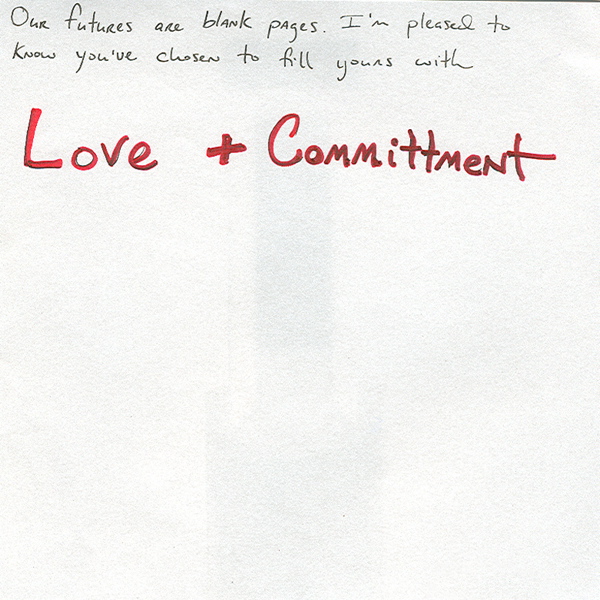 Our futures are blank pages. I'm pleased to
know you've chosen to fill yours with
Love + Committment